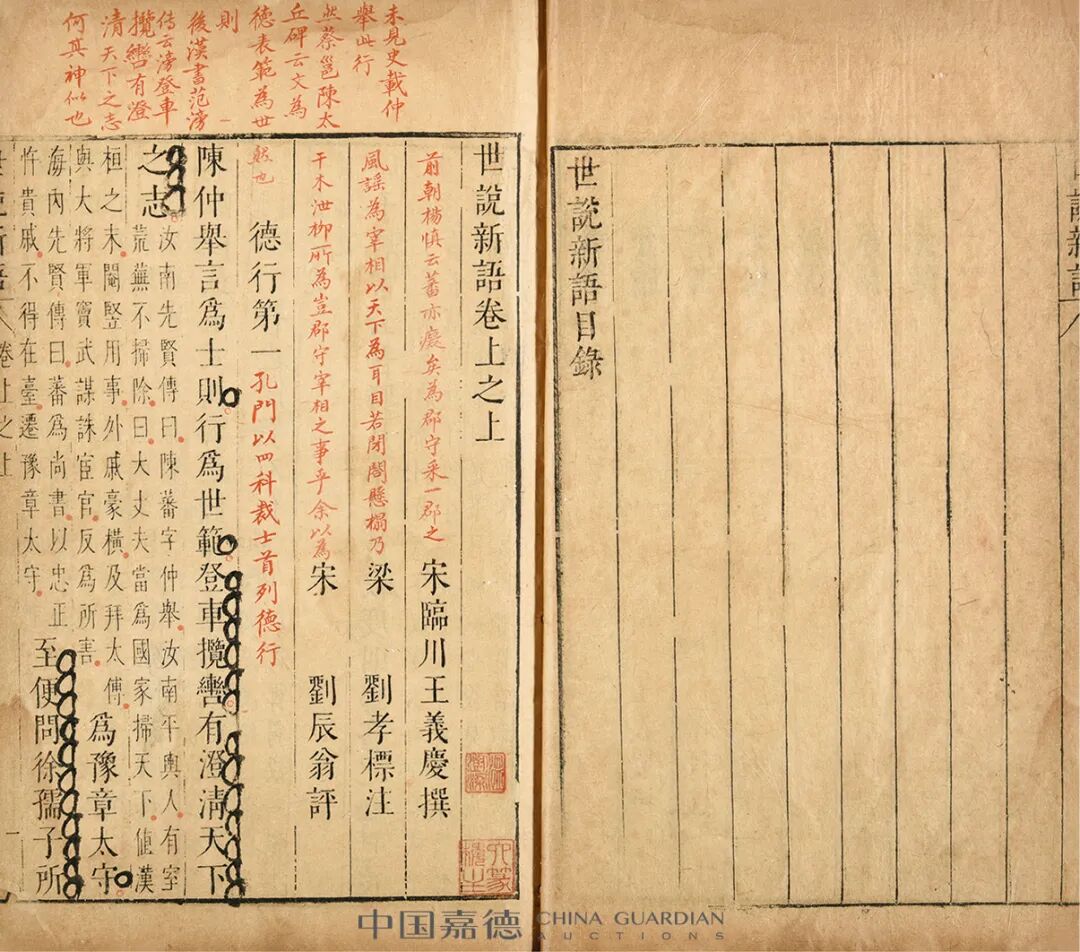 世說新語
世說新語目錄
世說新語卷上之上
前朝楊慎云蕃亦癡矣為郡守采一郡之
宋臨川王義慶撰
風謠為宰相以天下為耳目若閉閤懸榻乃
梁 劉孝標注
干木泄柳所為豈郡守宰相之事乎余以為
宋 劉辰翁評
德行第一
孔門以四科裁士首列德行
未見史載仲
舉此行
然蔡邕陳太
丘碑云文為
德表範為世
則
陳仲舉言爲士則行爲世範登車攬轡有澄清天下
之志
汝南先賢傳曰陳蕃字仲舉汝南平輿人有室
荒蕪不掃除曰大丈夫當爲國家掃天下值漢
桓之末閹豎用事外戚豪橫及拜太傅
與大將軍竇武謀誅宦官反爲所害
海內先賢傳曰蕃爲尚書以忠正
忤貴戚不得在臺遷豫章太守
爲豫章太守
至便問徐孺子所
一
後漢書范滂
傳云滂登車
攬轡有澄
清天下之志
何其神似也
世說新語 卷上之上
一
中国嘉德 CHINA GUARDIAN
AUCTIONS